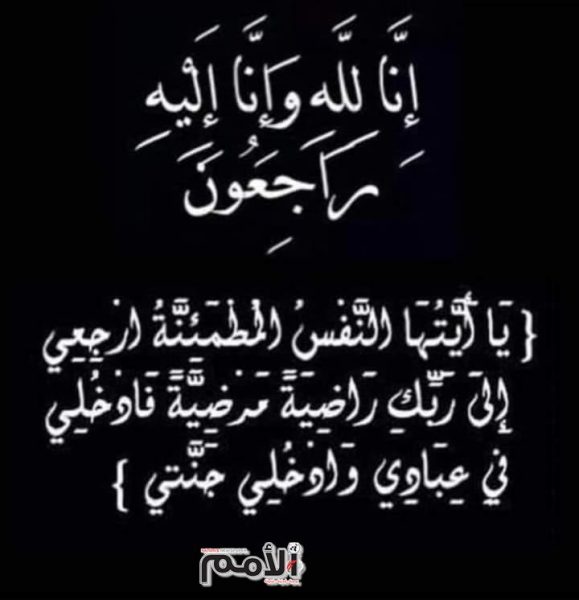 إِنَّا لِلَّهِ وَإِنَّا إِلَيْهِ
رَاجَعُونَ
{ يَا أَيَّتُهَا النَّفْسُ المُطْمَئِنَّةُ ارْجِعِي
إِلَى رَبِّكِ رَاضِيَةً مَرْضِيَّةً فَادْخُلِي
فِي عِبَادِي وَادْخُلِي جَنَّتِي }
الأمم